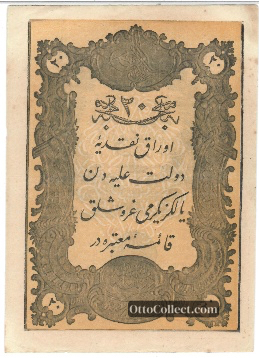 ٢٠
٢٠ ٢٠
اوراق نقدیهٔ
دولت علیه دن
یالکز یکرمی غروشلق
قائمهٔ معتبره در
٢٠ ٢٠
OttoCollect.com